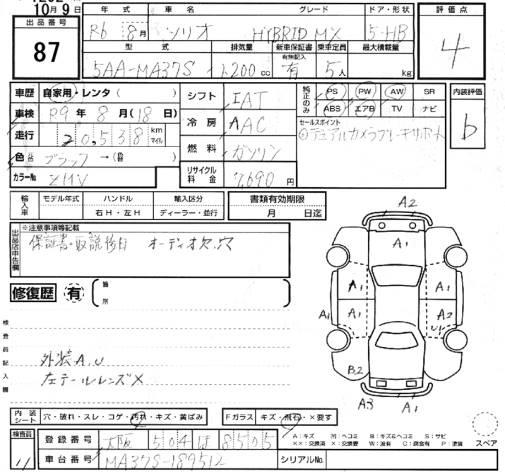 10月9日
出品番号
87
年式 車名 グレード ドア・形状
R6 8月 ソリオ HYBRID MX 5-HB
型式 排気量 新車保証書 有無記入 乗車定員 最大積載量
5AA-MA37S 1200cc 有 5人 kg
評価点
4
車歴 自家用・レンタ
車検 R9年8月(18日)
走行 20,538 km マイル
色 ブラック →(
カラーNo. ZMV
シフト IAT
冷房 AAC
燃料 ガソリン
リサイクル料金 7,690円
純正のみ PS PW AW SR
ABS エアB TV ナビ
セールスポイント
デュアルカメラブレーキサポート
内装評価
b
輸入車 モデル年式 ハンドル 輸入区分
右H・左H ディーラー・並行
書類有効期限
月 日迄
出品店申告欄
※注意事項等記載
保証書・取説後日 オーディオ欠.穴
修復歴 有 箇所
検査員記入欄
外装A.U
左テールレンズ✕
A2
A1
A1
A1
A1
A1
A1
A2
U1
B2
A3
A1
内装シート 穴・破れ・スレ・コゲ・汚れ・キズ・黄ばみ
Fガラス キズ・飛石・×要す
A:キズ M:ヘコミ B:キズヘコミ S:サビ
××:交換済 ×:要交換 W:波有 C:腐食有 P:塗質
スペア
検査員
11
登録番号 大阪 504 は 8505
車台番号 MA37S-189512
シリアルNo.